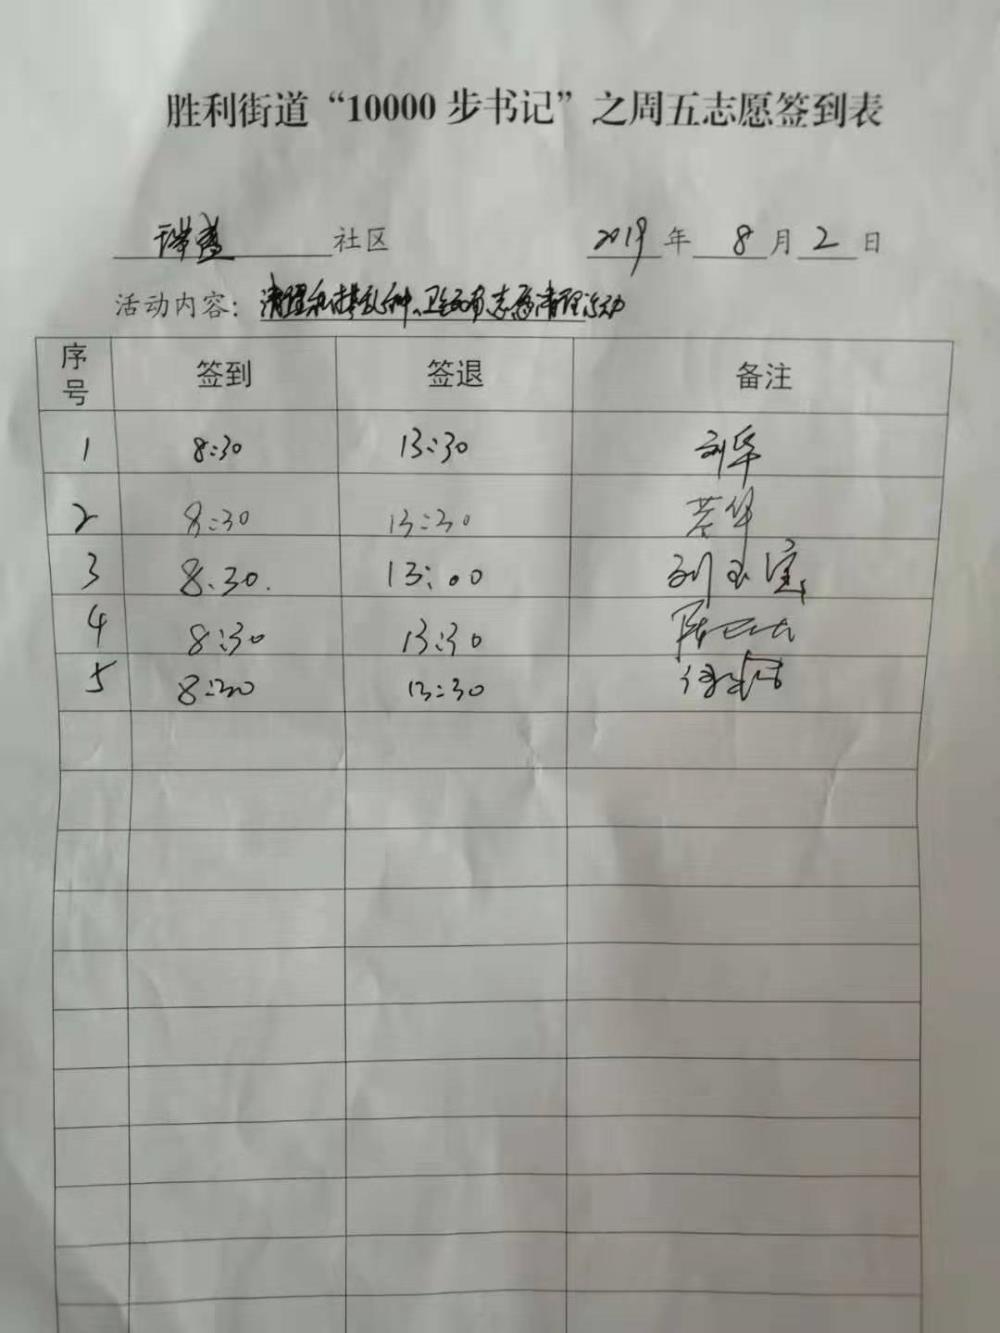 胜利街道“10000 步书记”之周五志愿签到表
社区 2019 年 8 月 2 日
活动内容：清理私搭乱种、卫生死角志愿清理活动
序号 签到 签退 备注
1 8:30 13:30 刘华
2 8:30 13:30
3 8.30. 13:00 刘玉宝
4 8:30 13:30
5 8:30 13:30